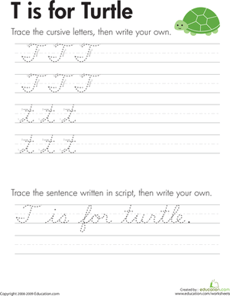 T is for Turtle
Trace the cursive letters, then write your own.
T T T
T T T
t t t
t t t
Trace the sentence written in script, then write your own.
T is for turtle.
Created by:
education.com
www.education.com/worksheets